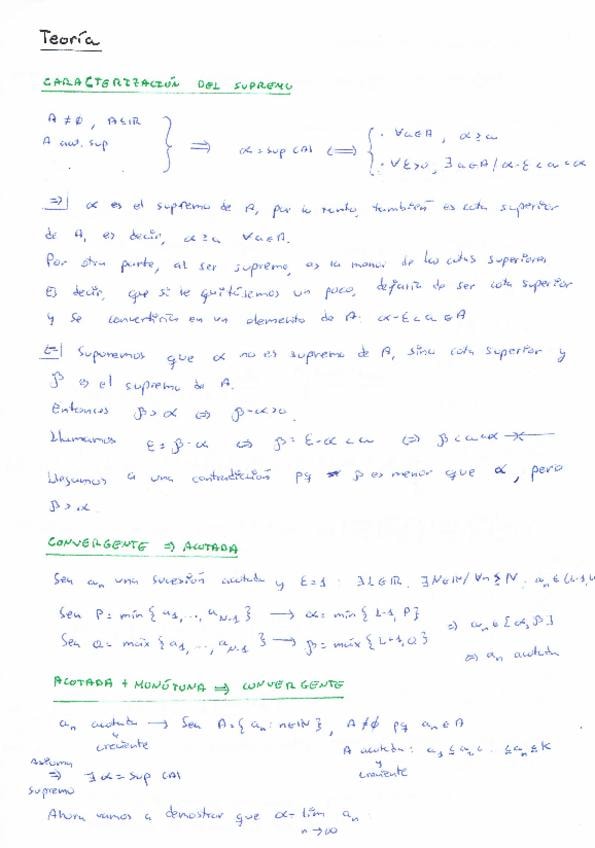 Teoría
CARACTERIZACIÓN DEL SUPREMO
A ≠ ∅, A⊆ℝ
A acot. sup
⇒ α = sup (A) ⟺
· ∀a∈A, α ≥ a
· ∀ε>0, ∃a∈A / α-ε < a < α
⇒| α es el supremo de A, por lo tanto, también es cota superior
de A, es decir, α ≥ a ∀a∈A.
Por otra parte, al ser supremo, es la menor de las cotas superiores
Es decir, que si le quitásemos un poco, dejaría de ser cota superior
y se convertiría en un elemento de A: α-ε < a ∈ A
⇐| Suponemos que α no es supremo de A, sino cota superior y
β es el supremo de A.
Entonces β > α ⇔ β-α > 0.
Llamamos ε = β-α ⇔ β = ε-α < a ⇔ β < a < α
Llegamos a una contradicción pq β es menor que α, pero
β > α.
CONVERGENTE ⇒ ACOTADA
Sea an una sucesión acotada y ε = 1 : ∃L∈ℝ, ∃N∈ℕ / ∀n ≥ N, an ∈ (L-1,
Sea P = mín { a1, .., aN-1 } → α = mín { L-1, P }
Sea Q = máx { a1, .., aN-1 } → β = máx { L+1, Q }
⇒ an ∈ [α, β]
⇒ an acotada
ACOTADA + MONÓTONA ⇒ CONVERGENTE
an acotada → Sea A = { an : n∈ℕ }, A ≠ ∅ pq an ∈ A
y
creciente
A acotada: a1 ≤ a2 ≤ .. ≤ an ≤ K
y
creciente
⇒ ∃ α = sup (A)
supremo
Ahora vamos a demostrar que α = lim an :
n→∞